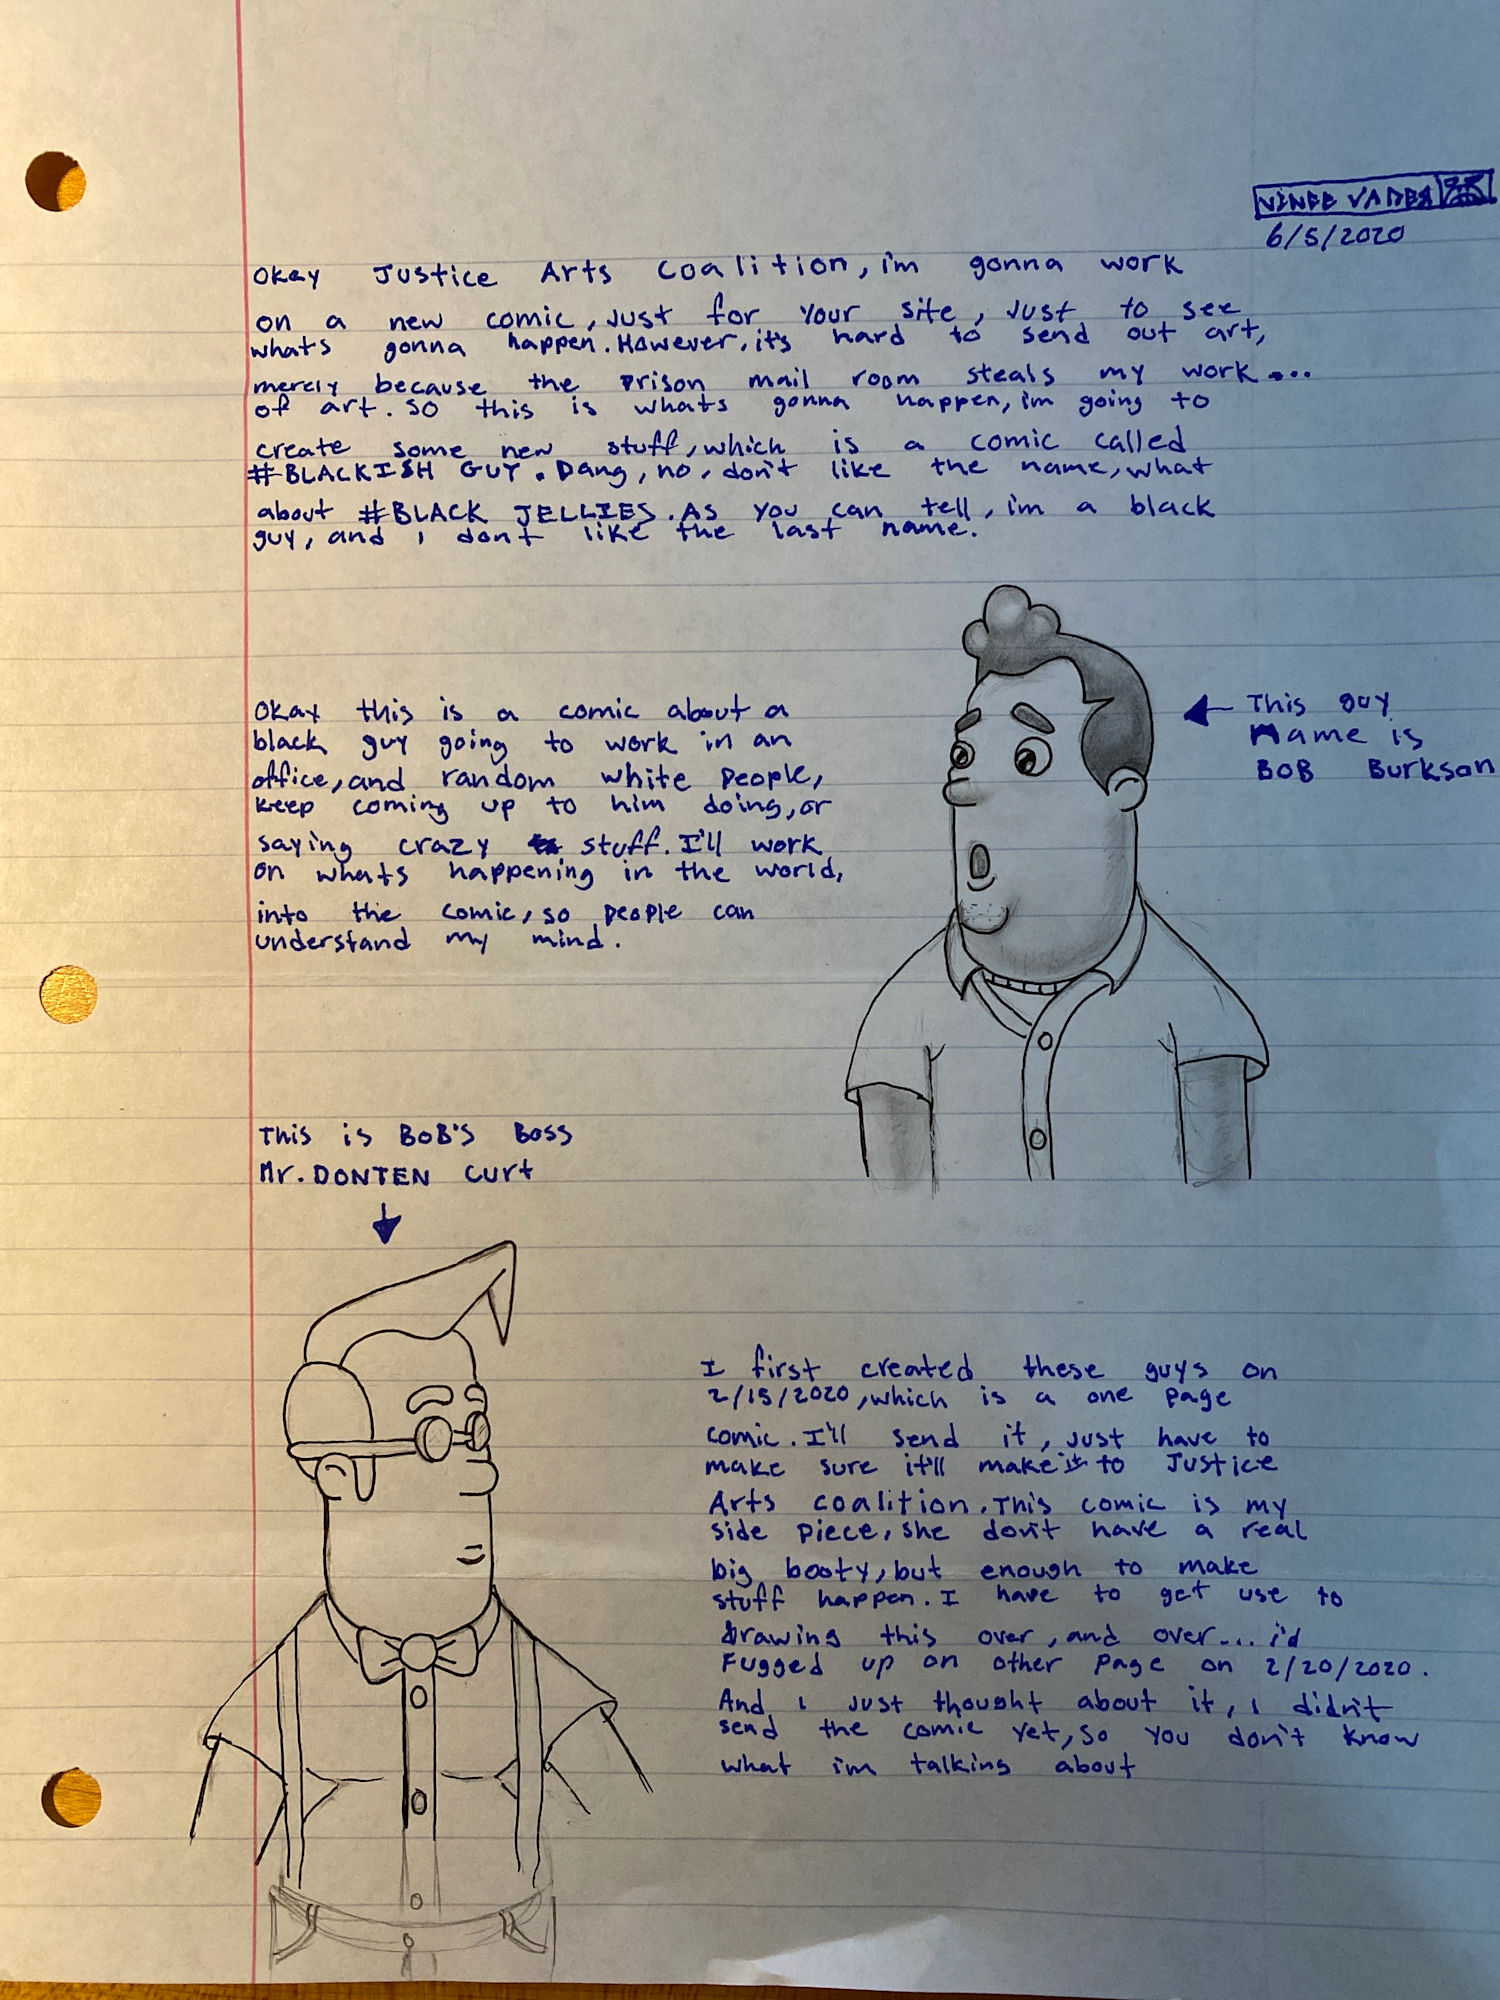 VINCE VADER
6/5/2020
Okay Justice Arts Coalition, i'm gonna work
on a new comic, Just for your site, Just to see
whats gonna happen. However, it's hard to send out art,
merely because the prison mail room steals my work....
of art. So this is whats gonna happen, i'm going to
create some new stuff, which is a comic called
#BLACKISH GUY. Dang, no, don't like the name, what
about #BLACK JELLIES. As you can tell, i'm a black
guy, and i don't like the last name.
Okay this is a comic about a
black guy going to work in an
office, and random white people,
keep coming up to him doing, or
saying crazy stuff. I'll work
on whats happening in the world,
into the comic, so people can
understand my mind.
This guy
Name is
BOB Burkson
This is BOB'S Boss
Mr. DONTEN Curt
I first created these guys on
2/15/2020, which is a one page
comic. I'll send it, just have to
make sure it'll make it to Justice
Arts coalition. This comic is my
side piece, she don't have a real
big booty, but enough to make
stuff happen. I have to get use to
drawing this over, and over... i'd
Fugged up on other page on 2/20/2020.
And i just thought about it, i didn't
send the comic yet, so you don't know
what i'm talking about